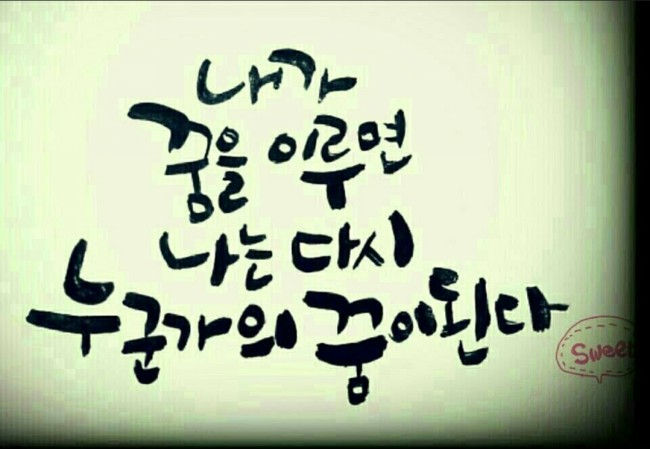 내가
꿈을 이루면
나는 다시
누군가의 꿈이된다
Sweet